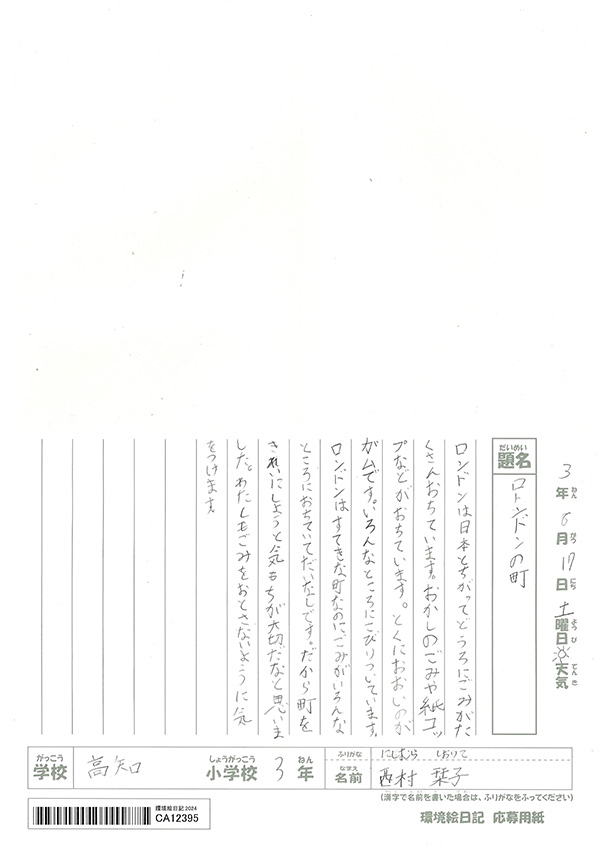 3年ねん6月がつ17日にち土曜日ようび☼天気てんき
だいめい
題名
ロンドンの町
ロンドンは日本とちがってどうろにごみがた
くさんおちています。おかしのごみや紙コッ
プなどがおちています。とくにおおいのが
ガムです。いろんなところにこびりついています。
ロンドンはすてきな町なのに、ごみがいろんな
ところにおちていてだいなしです。だから町を
きれいにしようと気もちが大切だなと思いま
した。わたしもごみをおとさないように気
をつけます。
がっこう
学校
高知
しょうがっこう
小学校
3
ねん
年
ふりがな
にしむら しおりこ
なまえ
名前
西村 栞子
(漢字で名前を書いた場合は、ふりがなをふってください)
環境絵日記2024
CA12395
環境絵日記 応募用紙